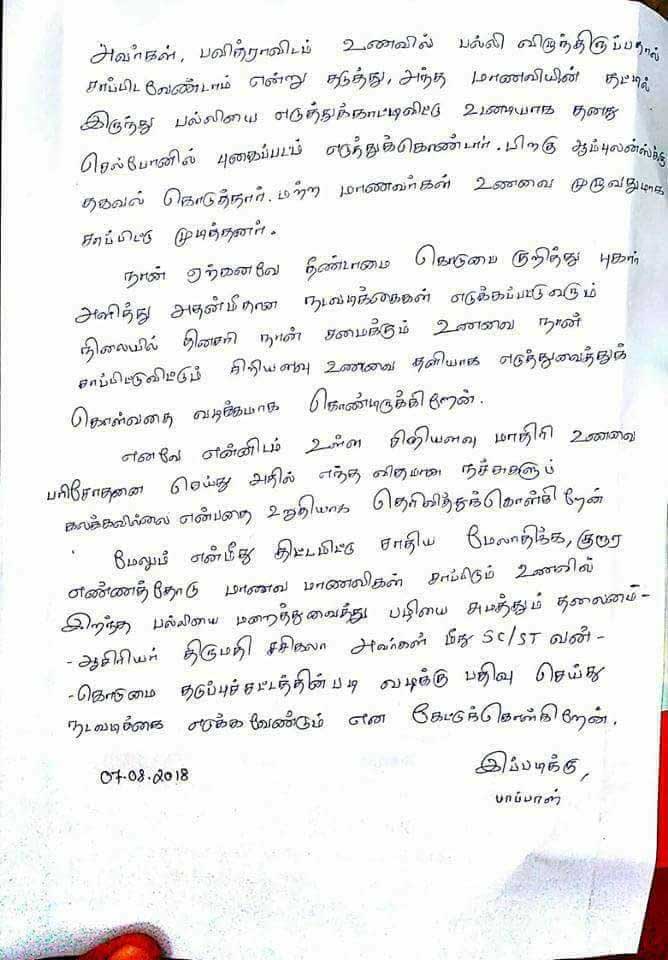 அவர்கள், பவித்ராவிடம் உணவில் பல்லி விழுந்திருப்பதால்
சாப்பிட வேண்டாம் என்று தடுத்து, அந்த மாணவியின் தட்டில்
இருந்து பல்லியை எடுத்துக்காட்டிவிட்டு உடனடியாக தனது
செல்போனில் புகைப்படம் எடுத்துக்கொண்டார். பிறகு ஆம்புலன்ஸ்க்கு
தகவல் கொடுத்தார். மற்ற மாணவர்கள் உணவை முழுவதுமாக
சாப்பிட்டு முடித்தனர்.
நான் ஏற்கனவே தீண்டாமை கொடுமை குறித்து புகார்
அளித்து அதன்மீதான நடவடிக்கைகள் எடுக்கப்பட்டுவரும்
நிலையில் தினசரி நான் சமைக்கும் உணவை நான்
சாப்பிட்டுவிட்டும் சிறியளவு உணவை தனியாக எடுத்துவைத்துக்
கொள்வதை வடிக்கமாக கொண்டிருக்கிறேன்.
எனவே என்னிடம் உள்ள சிறியளவு மாதிரி உணவை
பரிசோதனை செய்து அதில் எந்த விதமான நச்சுகளும்
கலக்கவில்லை என்பதை உறுதியாக தெரிவித்துக்கொள்கிறேன்
மேலும் என்மீது திட்டமிட்டு சாதிய மேலாதிக்க, குரூர
எண்ணத்தோடு மாணவ மாணவிகள் சாப்பிடும் உணவில்
இறந்த பல்லியை மறைத்துவைத்து பழியை சுமத்தும் தலைமை-
-ஆசிரியர் திருமதி சசிகலா அவர்கள் மீது SC/ST வன்-
-கொடுமை தடுப்புச்சட்டத்தின்படி வடிக்கு பதிவு செய்து
நடவடிக்கை எடுக்க வேண்டும் என கேட்டுக்கொள்கிறேன்.
இப்படிக்கு,
07.08.2018
பாப்பாள்